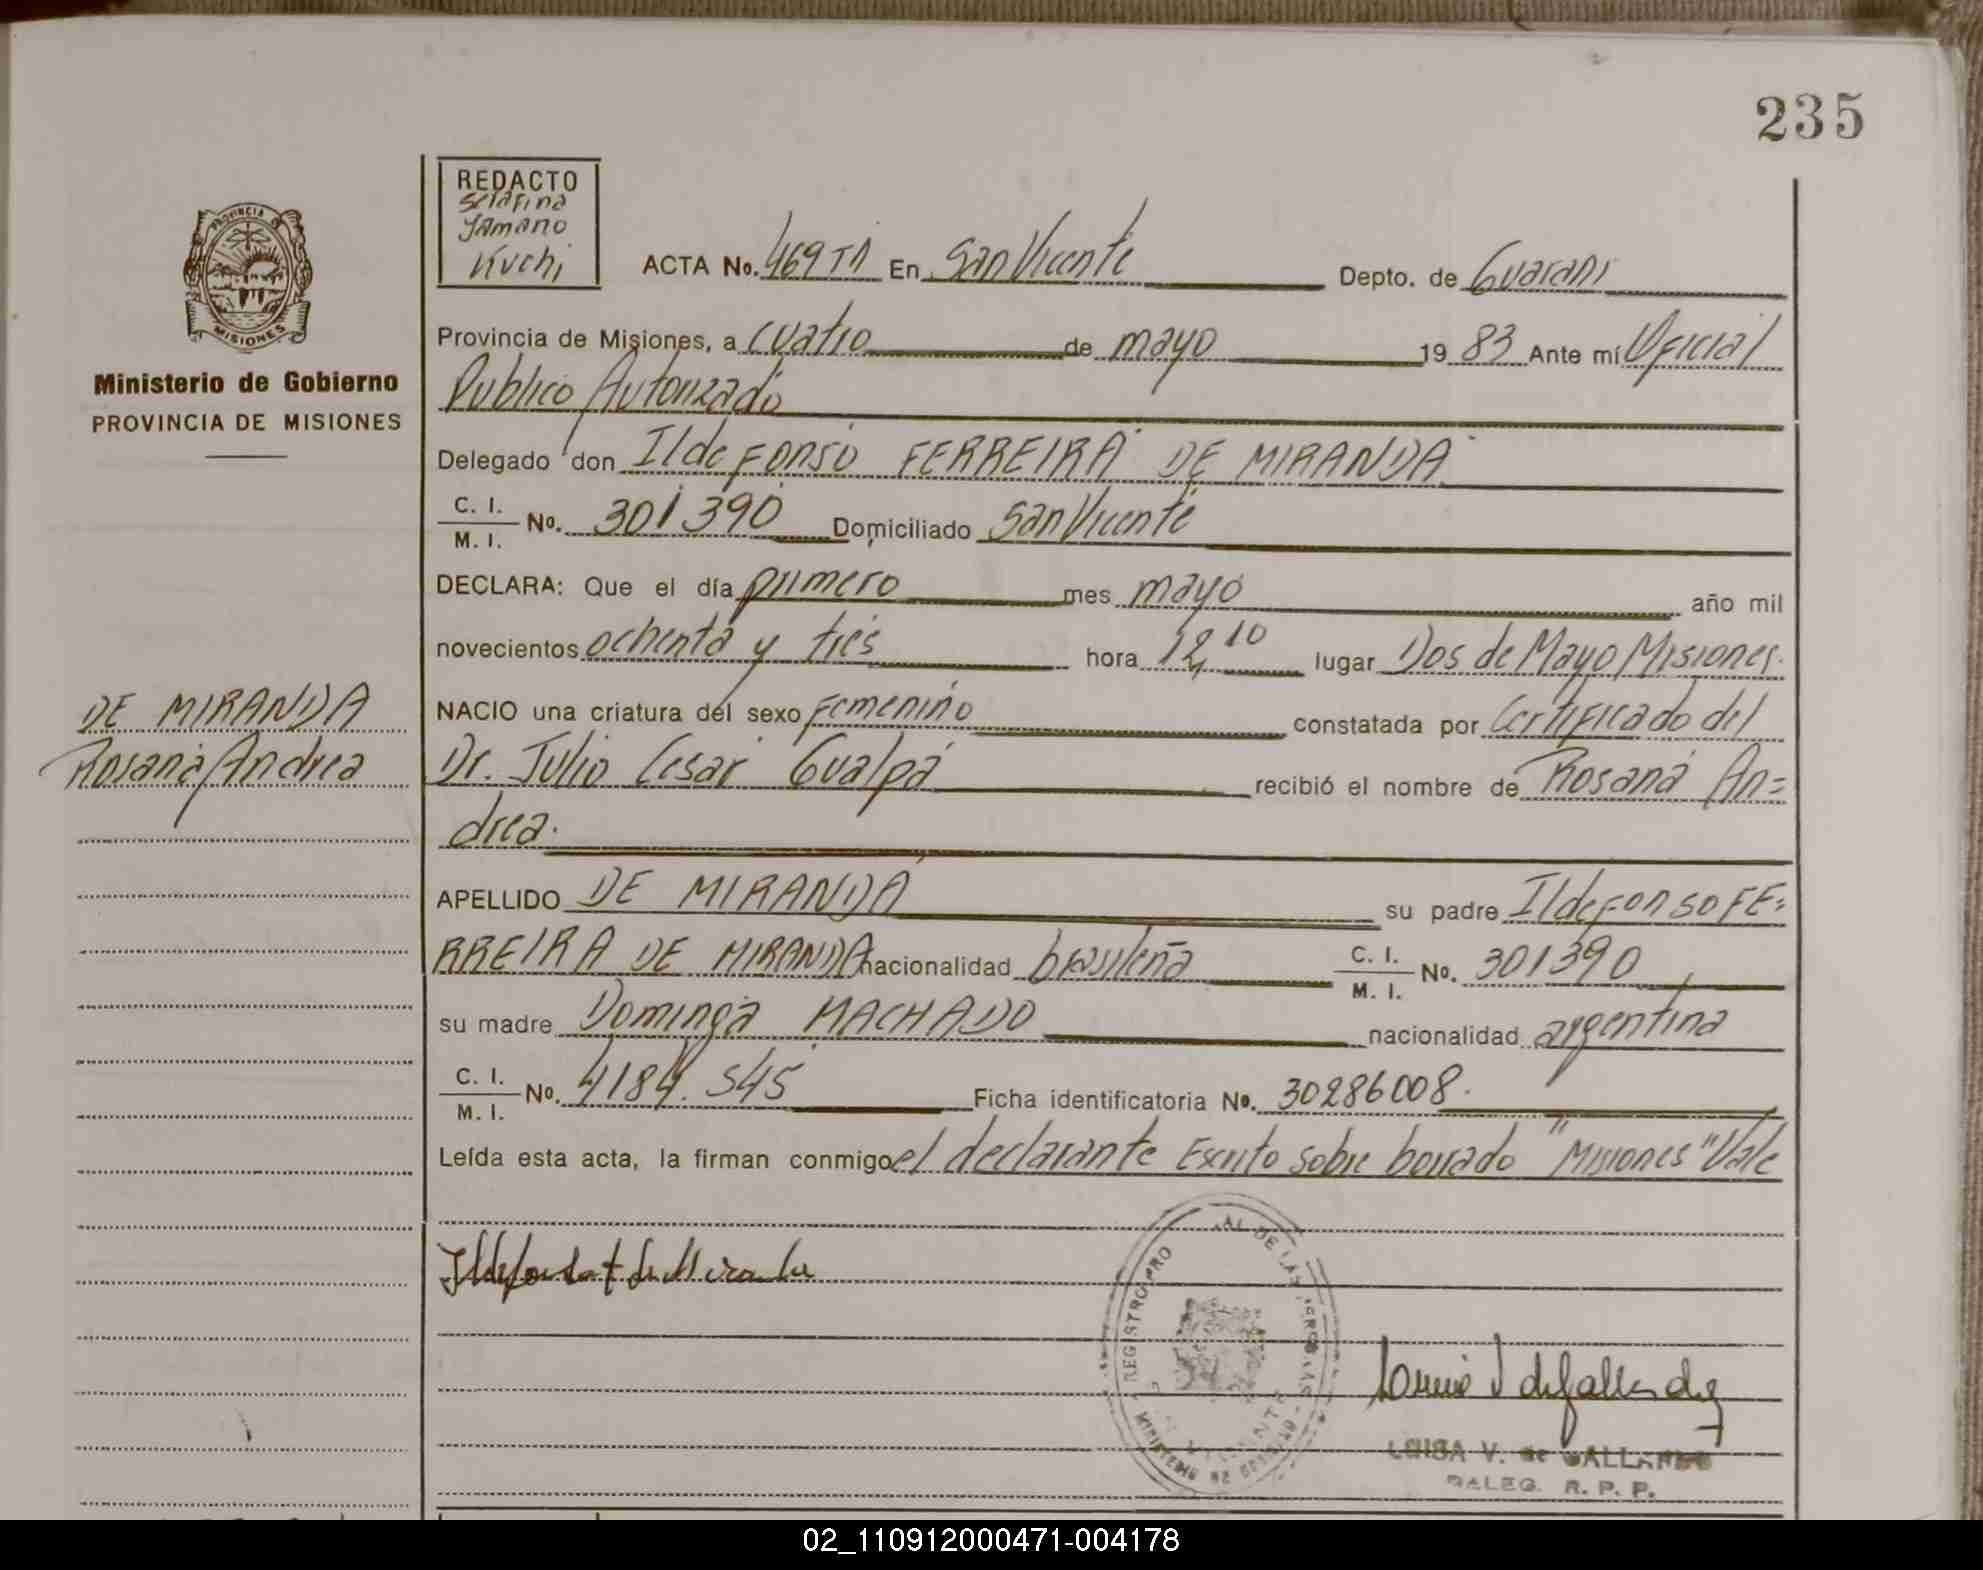 235
REDACTO
Serafina
Yamano
Kuchi
ACTA No. 469 En San Vicente Depto. de Guarani
PROVINCIA
MISIONES
Ministerio de Gobierno
PROVINCIA DE MISIONES
Provincia de Misiones, a cuatro de mayo 19 83 Ante mí Oficial
Publico Autorizado
Delegado don Ildefonso FERREIRA DE MIRANDA
C. I.
M. I. No. 301390 Domiciliado San Vicente
DECLARA: Que el día primero mes mayo año mil
novecientos ochenta y tres hora 12,10 lugar Dos de Mayo Misiones.
DE MIRANDA
Rosana Andrea
NACIO una criatura del sexo femenino constatada por Certificado del
Dr. Julio Cesar Gualpa recibió el nombre de Rosana An=
drea.
APELLIDO DE MIRANDA su padre Ildefonso FE=
RREIRA DE MIRANDA nacionalidad brasileña C. I.
M. I. No. 301390
su madre Dominga MACHADO nacionalidad argentina
C. I.
M. I. No. 4184.545 Ficha identificatoria No. 30286008.
Leída esta acta, la firman conmigo el declarante Escrito sobre borrado "Misiones" Vale
Ildefonso f de Miranda
LUISA V. de GALLARDO
DALEG. R. P. P.
02_110912000471-004178